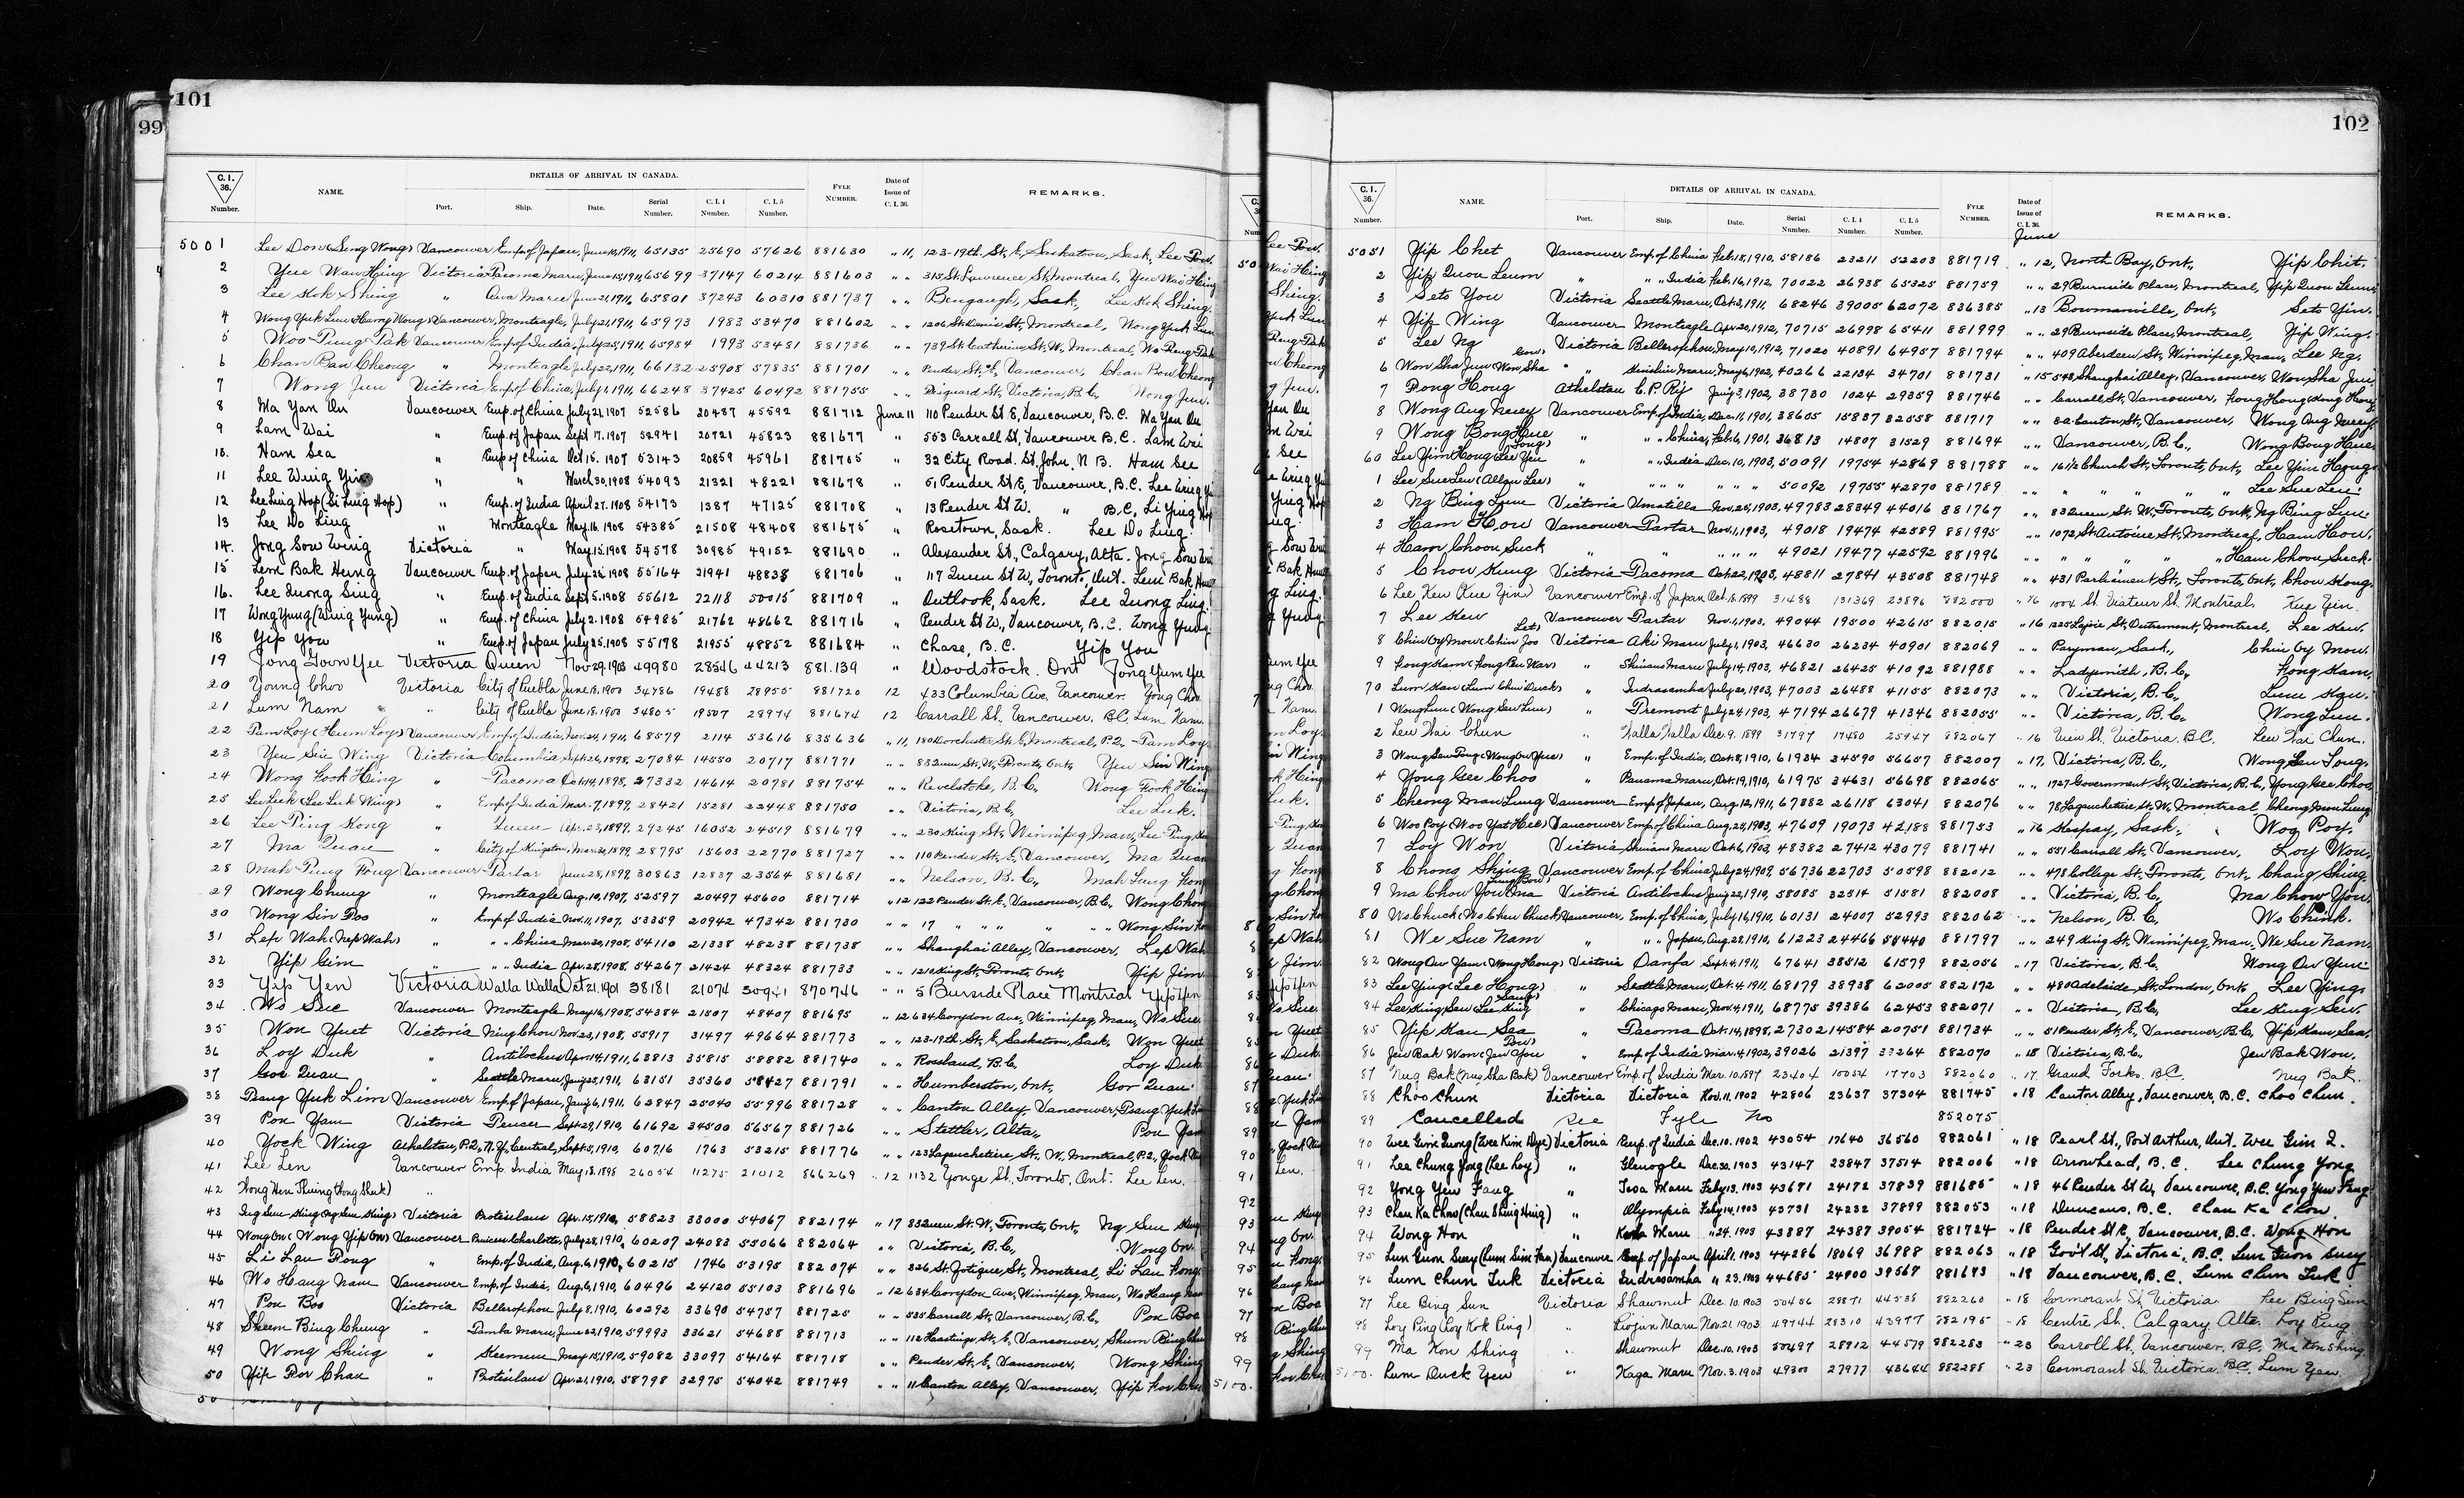 101
99
C. I. 36. Number. NAME. DETAILS OF ARRIVAL IN CANADA. Port. Ship. Date. Serial Number. C. I. 4 Number. C. I. 5 Number. FYLE NUMBER. Date of Issue of C. I. 36. REMARKS.
5001 Lee Don (Seng Wong) Vancouver Emp. of Japan, June 10, 1911, 65135 25690 57626 881630 " 11, 123-19th St. E, Saskatoon, Sask, Lee Don.
2 Yue Wau Hing Victoria Tacoma Maru, June 15, 1911, 65699 37147 60214 881603 " " 315 St. Lawrence St, Montreal, Yue Wai Hing
3 Lee Kok Shing " Awa Maru June 21, 1911, 65801 37243 60310 881737 " " Bengough, Sask, Lee Kok Shing.
4 Wong Yuk Lun (Harry Wong) Vancouver, Monteagle, July 21, 1911, 65973 1983 53470 881602 " " 1206 St. Denis St, Montreal, Wong Yuk Lun
5 Woo Pung Pak Vancouver Emp. of India, July 25, 1911, 65984 1993 53481 881736 " " 739 St. Catherine St. W., Montreal,
6 Chan Bau Cheong " Monteagle July 22, 1911, 66132 25908 57835 881701 " " Pender St. E, Vancouver, Chan Bow Cheong
7 Wong Jun Victoria Emp. of China, July 6, 1911, 66248 37425 60492 881755 " " Fisguard St, Victoria, B.C, Wong Jun.
8 Ma Yan On Vancouver Emp. of China July 21, 1907 52586 20487 45592 881712 June 11 110 Pender St E, Vancouver, B.C. Ma Yan On
9 Lam Wai " Emp. of Japan Sept 17, 1907 52941 20721 45823 881677 " 553 Carrall St, Vancouver B.C. Lam Wai
10. Ham Sea " Emp. of China Oct 15. 1907 53143 20859 45961 881705 " 32 City Road. St. John, N B. Ham See
11 Lee Wing Yin " " March 30, 1908 54093 21321 48221 881678 " 51 Pender St E, Vancouver, B.C. Lee Wing
12 Lee Ling Hop (Li Ling Hop) " Emp. of India April 27. 1908 54173 1387 47125 881708 " 13 Pender St W. " B.C, Li Ying Hop
13 Lee Do Ling " Monteagle May. 16. 1908 54385 21508 48408 881675 " Rosetown, Sask. Lee Do Ling.
14. Jong Sow Wing Victoria " May 15, 1908 54578 30985 49152 881690 " Alexander St., Calgary, Alta. Jong Sow
15 Lem Bak Hung Vancouver Emp. of Japan July 26. 1908 55164 21941 48838 881706 " 117 Queen St W, Toronto, Ont. Lem Bak
16. Lee Quong Sing " Emp. of India Sept. 5. 1908 55612 22118 50015 881709 " Outlook, Sask. Lee Quong Ling.
17 Wong Yung (Wing Yung) " Emp. of China July 2. 1908 54985 21762 48662 881716 " Pender St W., Vancouver, B.C. Wong Yung
18 Yip You " Emp. of Japan July 25. 1908 55178 21955 48852 881684 " Chase, B.C. Yip You
19 Jong Goon Yee Victoria Queen Nov 29. 1903 49980 28546 44213 881.139 " Woodstock. Ont Jong Yum Yee
20 Young Choo Victoria City of Puebla June 18. 1900 34786 19488 28955 881720 12 433 Columbia Ave, Vancouver.
21 Lum Nam " City of Puebla June 18. 1900 34805 19507 28974 881674 12 Carrall St. Vancouver. B.C. Lum Nam
22 Pam Loy (Hum Loy) Vancouver Emp. of India, Nov. 24, 1911, 68579 2114 53616 835636 " 11, 180 Dorchester St. E, Montreal, P.Q. Pam Loy
23 Yeu Sin Wing Victoria Columbia Sept. 26, 1898, 27084 14550 20717 881771 " " 83 Queen St. W, Toronto, Ont, Yeu Sin Wing
24 Wong Fook Hing " Tacoma Oct. 14, 1898, 27332 14614 20781 881754 " " Revelstoke, B.C., Wong Fook Hing
25 Lee Luk (Lee Luk Wing) " Emp. of India Mar. 7, 1899, 28421 15281 22448 881750 " " Victoria, B.C, Lee Luk.
26 Lee Ping Kong " Queen Apr. 23, 1899, 29245 16052 24519 881679 " " 230 King St, Winnipeg, Man,
27 Ma Quan " City of Kingston, Mar. 30, 1899, 28795 15603 22770 881727 " " 110 Pender St, E, Vancouver, Ma Quan
28 Mah Pung Fong Vancouver Tartar June 28, 1899, 30863 12837 23564 881681 " " Nelson, B.C.,
29 Wong Chung " Monteagle Aug. 10, 1907, 52597 20497 45600 881714 " 12 122 Pender St. E, Vancouver, B.C., Wong Chong
30 Wong Sin Foo " Emp. of India Nov. 11, 1907, 53359 20942 47342 881730 " " 17 " " " " " Wong Sin
31 Lep Wah (Nep Wah) " " " China Mar. 30, 1908, 54110 21338 48238 881738 " " Shanghai Alley, Vancouver, Lep Wah
32 Yip Gim " " " India Apr. 28, 1908, 54267 21424 48324 881733 " " King St, Toronto, Ont, Yip Jim
33 Yip Yen Victoria Walla Walla Oct 21. 1901 38181 21074 30941 870746 " " 5 Burside Place Montreal Yip Yen
34 Wo Sue Vancouver Monteagle May 16, 1908, 54384 21507 48407 881695 " 12 634 Corydon Ave, Winnipeg, Man, Wo Sue
35 Won Yuet Victoria Ning Chow Nov. 23, 1908, 55917 31497 49664 881773 " " 123-19th. St. E, Saskatoon, Sask. Won Yuet
36 Loy Duk " Antilochus Apr. 14, 1911, 63813 35815 58882 881740 " " Rossland, B.C. Loy Duk
37 Goe Quan " Seattle Maru, Jan'y 25, 1911, 63151 35360 58427 881791 " " Humberston, Ont, Gor Quan.
38 Tsang Yuk Lim Vancouver Emp. of Japan, Jan'y 6, 1911. 62847 25040 55996 881728 " " Canton Alley, Vancouver,
39 Pon Yam Victoria Teucer Sept. 29, 1910, 61692 34500 56567 881726 " " Stettler, Alta, Pon Yam
40 Yock Wing Athelstan, P.Q., N.Y. Central, Sept. 5, 1910, 60716 1763 53215 881776 " " 123 Lagauchetiere, St. W. Montreal, P.Q.,
41 Lee Len Vancouver Emp. India May 18. 1898 26054 11275 21012 866269 " 12 1132 Yonge St. Toronto. Ont. Lee Len.
42 "
43 Victoria Protesilaus Apr. 15, 1910, 58823 33000 54067 882174 " 17 83 Queen St. W, Toronto, Ont, Ng Sue
44 Wong On (Wong Yip On) Vancouver Princess Charlotte, July 28, 1910, 60207 24083 55066 882064 " " Victoria, B.C., Wong On.
45 Li Lau Pong " Emp. of India, Aug. 6, 1910, 60215 1746 53195 882074 " " Montreal, Li Lau
46 Wo Hang Nam Vancouver Emp. of India, Aug. 6, 1910, 60496 24120 55103 881696 " 12 634 Corydon Ave, Winnipeg, Man, Wo Hang
47 Pon Boo Victoria Bellerophon July 8, 1910, 60292 33690 54757 881725 " " 535 Carrall St, Vancouver, B.C., Pon Boo
48 Sheem Bing Chung " Tamba Maru, June 22, 1910, 59993 33621 54688 881713 " " 112 Hastings St. E, Vancouver,
49 Wong Shing " Keemun May 15, 1910, 59082 33097 54164 881718 " " Pender St. E, Vancouver, Wong Shing
50 Yip For Chau " Protesilaus Apr. 21, 1910, 58798 32975 54042 881749 " " 11 Canton Alley, Vancouver,
102
C. I. 36. Number. NAME. DETAILS OF ARRIVAL IN CANADA. Port. Ship. Date. Serial Number. C. I. 4 Number. C. I. 5 Number. FYLE NUMBER. Date of Issue of C. I. 36. REMARKS.
June
5051 Yip Chet Vancouver Emp. of China Feb. 18, 1910, 58186 23211 52203 881719 " 12, North Bay, Ont., Yip Chit.
2 Yip Quou Leum " " " India Feb. 16, 1912, 70022 26938 65325 881759 " " 29 Burnside Place, Montreal,
3 Seto You Victoria Seattle Maru, Oct. 3, 1911, 68246 39005 62072 836385 " 13 Bowmanville, Ont, Seto Yin.
4 Yip Wing Vancouver Monteagle Apr. 20, 1912, 70715 26998 65411 881999 " " 29 Burnside Place, Montreal, Yip Wing.
5 Lee Ng Victoria Bellerophon, May 10, 1912, 71020 40891 64957 881794 " " 409 Aberdeen St, Winnipeg, Man, Lee Ng.
6 Won Sha Jun (Won Sha Gow) " Shinshiu Maru, May 6, 1902, 40266 22134 34701 881731 " 15 543 Shanghai Alley, Vancouver, Won Sha Jun
7 Pong Hong Athelstan C.P. Ry Jan'y 3, 1902, 38730 1024 29359 881746 " " Carrall St, Vancouver,
8 Wong Aug Nuey Vancouver Emp. of India, Dec. 11, 1901, 38605 15837 32558 881717 " " 8a Canton St, Vancouver, Wong Aug Nuey
9 Wong Bong Hue " " " China, Feb. 6, 1901, 36813 14807 31529 881694 " " Vancouver, B.C., Wong Bong Hue
60 Lee Yim Hong (Lee Yen Fong) " " " India Dec. 10, 1903, 50091 19754 42869 881788 " " 161½ Church St, Toronto, Ont, Lee Yim Hong
1 Lee Sue Leu (Allan Lee) " " " " " " " 50092 19755 42870 881789 " " " " " " Lee Sue Leu.
2 Ng Bing Lune Victoria Umatilla Nov. 25, 1903, 49783 28349 44016 881767 " " 83 Queen St. W, Toronto, Ont, Ng Bing Lune
3 Ham How Vancouver Tartar Nov. 1, 1903, 49018 19474 42589 881995 " " 1072 St. Antoine St, Montreal, Ham How.
4 Ham Choon Suck " " " " " 49021 19477 42592 881996 " " " " " Ham Choon Suck.
5 Chow Kung Victoria Tacoma Oct. 22, 1903, 48811 27841 43508 881748 " " 431 Parliament St, Toronto, Ont, Chow Kong.
6 Lee Ken (Kue Yin) Vancouver Emp. of Japan Oct. 18. 1899 31488 131369 23896 882000 " 16 1004 St. Viateur St. Montreal. Kue Yin.
7 Lee Kew Vancouver Tartar Nov. 1, 1903, 49044 19500 42615 882015 " 16 1225 Lajoie St, Outremont, Montreal, Lee Kew.
8 Chin Oy Mow (Chin Joo Let) Victoria Aki Maru July 1, 1903, 46630 26234 40901 882069 " " Payman, Sask, Chin Oy Mow.
9 Fong Kam (Fong Pen War) " Shinano Maru July 14, 1903, 46821 26425 41092 881988 " " Ladysmith, B.C, Fong Kam.
70 Lum Kau (Lum Chin Duck) " Indrasamha July 20, 1903, 47003 26488 41155 882073 " " Victoria, B.C, Lum Kau.
1 Wong Lun (Wong Sew Lun) " Tremont July 24, 1903, 47194 26679 41346 882055 " " Victoria, B.C, Wong Lun.
2 Lew Wai Chun " Walla Walla Dec. 9. 1899 31797 17480 25947 882067 " 16 View St. Victoria. B.C. Lew Wai Chun.
3 Wong Sew Fong (Wong On Yue) " Emp. of India, Oct. 8, 1910, 61934 34590 56657 882007 " 17, Victoria, B.C, Wong Sew Fong.
4 Yong Gee Choo " Panama Maru, Oct. 19, 1910, 61975 34631 56698 882065 " " 1727 Government St, Victoria, B.C., Yong Gee Choo
5 Cheong Man Lung Vancouver Emp. of Japan, Aug. 12, 1911, 67882 26118 63041 882076 " " 78 Lagauchetiere, St. W. Montreal
6 Woo Poy (Woo Yat Hee) Vancouver Emp. of China Aug. 25, 1903, 47609 19073 42188 881753 " 16 Kaspay, Sask, Woo Poy.
7 Loy Won Victoria Shinano Maru Oct. 6, 1903, 48382 27412 43079 881741 " " 551 Carrall St, Vancouver, Loy Won.
8 Chong Shing Vancouver Emp. of China July 24, 1909, 56736 22703 50598 882012 " " 478 College St, Toronto, Ont, Chong Shing.
9 Ma Chow You (Ma Lung Bow) Victoria Antilochus Jan'y 22, 1910, 58085 32514 51581 882008 " " Victoria, B.C, Ma Chow You.
80 Wo Chuck (Wo Chew Chuck) Vancouver, Emp. of China, July 16, 1910, 60131 24007 52993 882062 " " Nelson, B.C, Wo Chuck.
81 We Sue Nam " " " Japan, Aug. 28, 1910, 61223 24466 54440 881797 " " 249 King St, Winnipeg, Man. We Sue Nam.
82 Wong On Yum (Wong Hong) Victoria Oanfa Sept. 4, 1911, 67641 38512 61579 882056 " 17 Victoria, B.C, Wong On Yum.
83 Lee Ying (Lee Hong) " Seattle Maru, Oct. 4, 1911, 68179 38938 62005 882172 " " 480 Adelaide St, London, Ont, Lee Ying.
84 Lee King Sew (Lee King Saung) " Chicago Maru, Nov. 4, 1911, 68775 39386 62453 882071 " " Victoria, B.C, Lee King Sew.
85 Yip Kau Sea " Tacoma Oct. 14, 1898, 27302 14584 20751 881734 " " 51 Pender St. E, Vancouver, B.C, Yip Kau Sea.
86 Jew Bak Won (Jew You Pow) " Emp. of India Mar. 4, 1902, 39026 21397 33264 882070 " 18 Victoria, B.C, Jew Bak Won.
87 Nug Bak (Nug Sha Bak) Vancouver Emp. of India Mar. 10. 1897 23404 10054 17703 882060 " 17 Grand Forks. B.C. Nug Bak.
88 Choo Chun Victoria Victoria Nov. 11. 1902 42806 23637 37304 881745 " 18 Canton Alley, Vancouver, B.C. Choo Chun.
89 Cancelled See Fyle No 852075
90 Wee Gim Quong (Wee Kim Dye) Victoria Emp. of India Dec. 10. 1902 43054 17640 36560 882061 " 18 Pearl St., Port Arthur, Ont. Wee Gim Q.
91 Lee Chung Yong (Lee Loy) " Glenogle Dec. 30. 1903 43147 23847 37514 882006 " 18 Arrowhead, B.C. Lee Chung Yong
92 Yong Yew Fang " Tosa Maru Feb'y 13. 1903 43671 24172 37839 881685 " 18 46 Pender St W, Vancouver, B.C. Yong Yew Fang
93 Chan Ka Chow (Chan Shing Hing) " Olympia Feb'y 14. 1903 43731 24232 37899 882053 " 18 Duncans, B.C. Chan Ka Chow.
94 Wong Hon " Kaga Maru " 24. 1903 43887 24387 39054 881724 " 18 Pender St E, Vancouver, B.C. Wong Hon
95 Lun Guon Suey (Lum Sim Fan) Vancouver Emp. of Japan April 1. 1903 44286 18069 36988 882063 " 18 Gov't St, Victoria, B.C. Lun Guon Suey
96 Lum Chun Luk Victoria Indrasamha " 23. 1903 44685 24900 39567 881693 " 18 Vancouver, B.C. Lum Chun Luk
97 Lee Bing Sun Victoria Shawmut Dec. 10. 1903 50456 28871 44538 882260 " 18 Cormorant St. Victoria. Lee Bing Sun
98 Loy Ping (Loy Kok Ping) " Riojun Maru Nov. 21. 1903 49744 28310 43977 882195 " 18 Centre St. Calgary. Alta. Loy Ping
99 Ma Kon Shing " Shawmut Dec. 10. 1903 50497 28912 44579 882283 " 23 Carroll St. Vancouver. B.C. Ma Kon Shing.
5100. Lum Duck Yew " Kaga Maru Nov. 3. 1903 49300 27977 43644 882288 " 23 Cormorant St. Victoria. B.C. Lum Yew.